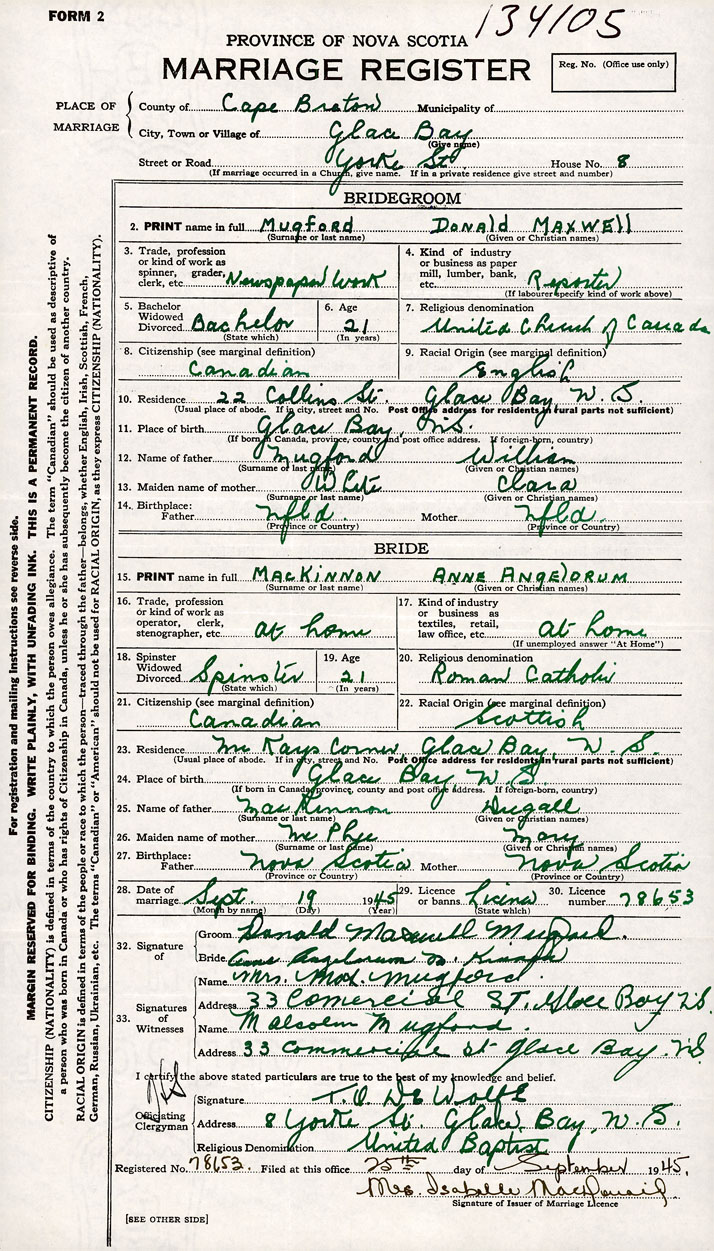 FORM 2
134105
PROVINCE OF NOVA SCOTIA
MARRIAGE REGISTER
Reg. No. (Office use only)
PLACE OF MARRIAGE
County of Cape Breton Municipality of
City, Town or Village of Glace Bay
(Give name)
Street or Road Yorke St. House No. 8
(If marriage occurred in a Church, give name. If in a private residence give street and number)
BRIDEGROOM
2. PRINT name in full MUGFORD DONALD MAXWELL
(Surname or last name) (Given or Christian names)
3. Trade, profession or kind of work as spinner, grader, clerk, etc. Newspaper Work
4. Kind of industry or business as paper mill, lumber, bank, etc. Reporter
(If labourer specify kind of work above)
5. Bachelor Widowed Divorced Bachelor
(State which)
6. Age 21
(In years)
7. Religious denomination United Church of Canada
8. Citizenship (see marginal definition) Canadian
9. Racial Origin (see marginal definition) English
10. Residence 22 Collins St. Glace Bay, N.S.
(Usual place of abode. If in city, street and No. Post Office address for residents in rural parts not sufficient)
11. Place of birth Glace Bay, N.S.
(If born in Canada, province, county and post office address. If foreign-born, country)
12. Name of father Mugford William
(Surname or last name) (Given or Christian names)
13. Maiden name of mother White Clara
(Surname or last name) (Given or Christian names)
14. Birthplace: Father Nfld. Mother Nfld.
(Province or Country) (Province or Country)
BRIDE
15. PRINT name in full MACKINNON ANNE ANGELORUM
(Surname or last name) (Given or Christian names)
16. Trade, profession or kind of work as operator, clerk, stenographer, etc. at home
17. Kind of industry or business as textiles, retail, law office, etc. at home
(If unemployed answer "At Home")
18. Spinster Widowed Divorced Spinster
(State which)
19. Age 21
(In years)
20. Religious denomination Roman Catholic
21. Citizenship (see marginal definition) Canadian
22. Racial Origin (see marginal definition) Scottish
23. Residence McKays Corner, Glace Bay, N.S.
(Usual place of abode. If in city, street and No. Post Office address for residents in rural parts not sufficient)
24. Place of birth Glace Bay N.S.
(If born in Canada province, county and post office address. If foreign-born, country)
25. Name of father MacKinnon Dugall
(Surname or last name) (Given or Christian names)
26. Maiden name of mother McPhee Mary
(Surname or last name) (Given or Christian names)
27. Birthplace: Father Nova Scotia Mother Nova Scotia
(Province or Country) (Province or Country)
28. Date of marriage Sept. 19 1945
(Month by name) (Day) (Year)
29. Licence or banns License
(State which)
30. Licence number 78653
32. Signature of
Groom Donald Maxwell Mugford.
Bride Anne Angelorum
33. Signatures of Witnesses
Name Mrs. Mugford
Address 33 Comercial St. Glace Bay N.S.
Name Malcolm Mugford.
Address 33 Commercial St Glace Bay. N.S
I certify the above stated particulars are true to the best of my knowledge and belief.
Officiating Clergyman
Signature T. O. DeWolfe
Address 8 Yorke St. Glace Bay, N.S.
Religious Denomination United Baptist
Registered No. 78653. Filed at this office 25th day of September 1945.
Mrs. Isabelle
Signature of Issuer of Marriage Licence
[SEE OTHER SIDE]
For registration and mailing instructions see reverse side.
MARGIN RESERVED FOR BINDING. WRITE PLAINLY, WITH UNFADING INK. THIS IS A PERMANENT RECORD.
CITIZENSHIP (NATIONALITY) is defined in terms of the country to which the person owes allegiance. The term "Canadian" should be used as descriptive of
a person who was born in Canada or who has rights of Citizenship in Canada, unless he or she has subsequently become the citizen of another country.
RACIAL ORIGIN is defined in terms of the people or race to which the person—traced through the father—belongs, whether English, Irish, Scottish, French,
German, Russian, Ukrainian, etc. The terms "Canadian" or "American" should not be used for RACIAL ORIGIN, as they express CITIZENSHIP (NATIONALITY).